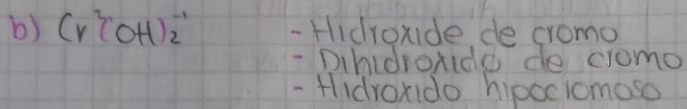 b) Cr²(OH)₂⁻¹ - Hidroxide de cromo
- Dihidroxido de cromo
- Hidroxido hipocromoso